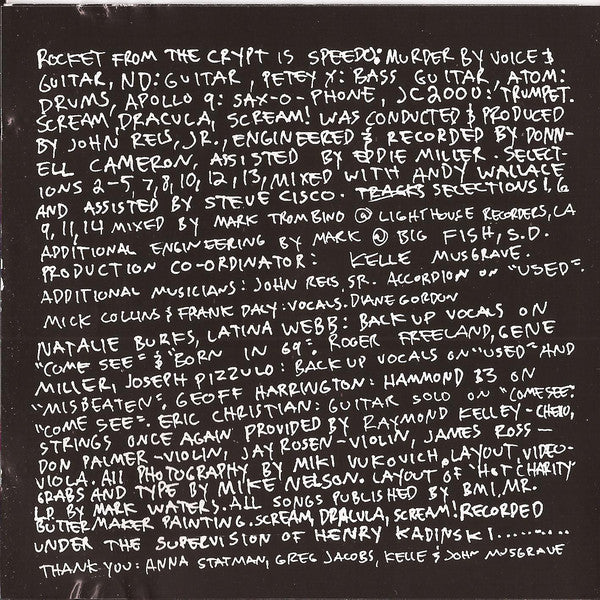 ROCKET FROM THE CRYPT IS SPEEDO: MURDER BY VOICE &
GUITAR, ND: GUITAR, PETEY X: BASS GUITAR, ATOM:
DRUMS, APOLLO 9: SAX-O-PHONE, JC2000: TRUMPET.
SCREAM, DRACULA, SCREAM! WAS CONDUCTED & PRODUCED
BY JOHN REIS, JR., ENGINEERED & RECORDED BY DONN-
ELL CAMERON, ASSISTED BY EDDIE MILLER. SELECT-
IONS 2-5, 7, 8, 10, 12, 13, MIXED WITH ANDY WALLACE
AND ASSISTED BY STEVE CISCO. TRACKS SELECTIONS 1, 6
9, 11, 14 MIXED BY MARK TROMBINO @ LIGHTHOUSE RECORDERS, LA
ADDITIONAL ENGINEERING BY MARK @ BIG FISH, S.D.
PRODUCTION CO-ORDINATOR: KELLE MUSGRAVE.
ADDITIONAL MUSICIANS: JOHN REIS, SR. ACCORDION ON "USED".
MICK COLLINS & FRANK DALY: VOCALS. DIANE GORDON
NATALIE BURKS, LATINA WEBB: BACK UP VOCALS ON
"COME SEE" & "BORN IN 69". ROGER FREELAND, GENE
MILLER, JOSEPH PIZZULO: BACK UP VOCALS ON "USED" AND
"MISBEATEN". GEOFF HARRINGTON: HAMMOND B3 ON
"COME SEE". ERIC CHRISTIAN: GUITAR SOLO ON "COME SEE".
STRINGS ONCE AGAIN PROVIDED BY RAYMOND KELLEY-CHELO,
DON PALMER-VIOLIN, JAY ROSEN-VIOLIN, JAMES ROSS-
VIOLA. All PHOTOGRAPHY BY MIKI VUKOVICH. LAYOUT, VIDEO-
GRABS AND TYPE BY MIKE NELSON. LAYOUT OF "HOT CHARITY"
LP BY MARK WATERS. ALL SONGS PUBLISHED BY BMI, MR.
BUTTERMAKER PAINTING. SCREAM, DRACULA, SCREAM! RECORDED
UNDER THE SUPERVISION OF HENRY KADINSKI..........
THANK YOU: ANNA STATMAN, GREG JACOBS, KELLE & JOHN MUSGRAVE